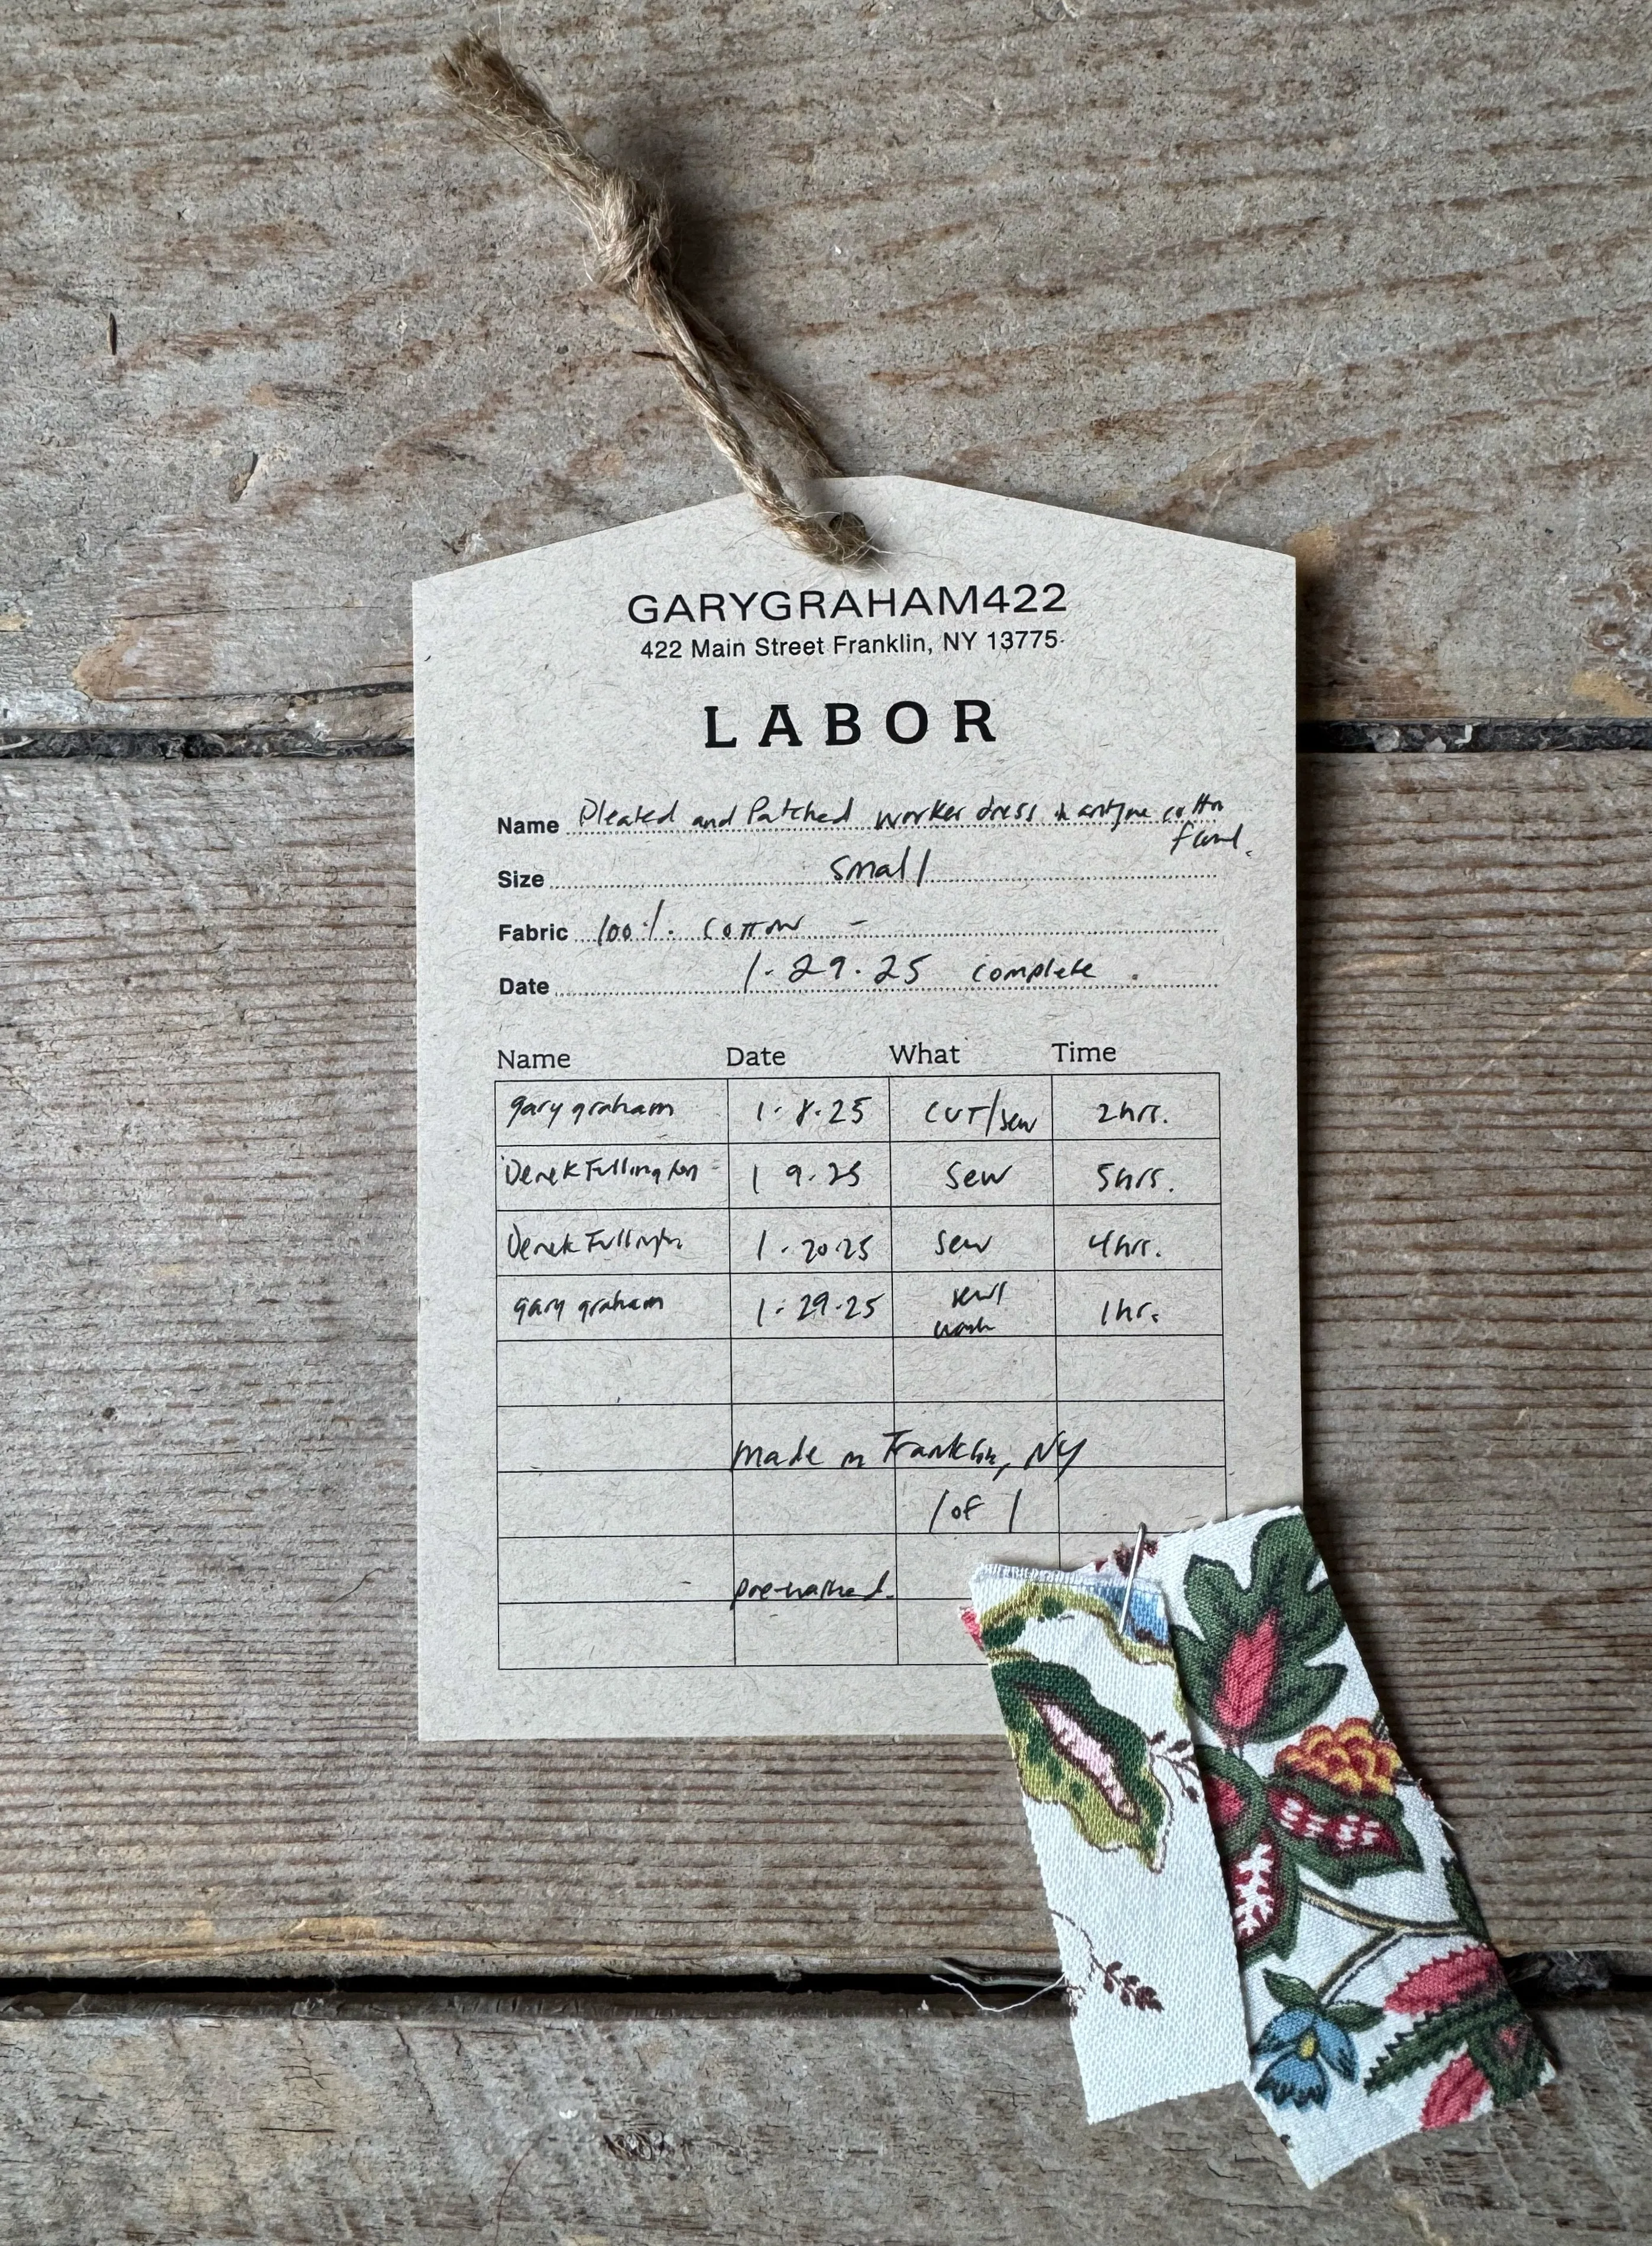 GARYGRAHAM422
422 Main Street Franklin, NY 13775
LABOR
Name Pleated and Patched worker dress in antique cotton
Size small
Fabric 100%. cotton -
Date 1.29.25 complete.
Name Date What Time
gary graham 1.8.25 CUT/sew 2hrs.
Derek Fullington 1 9.25 Sew 5hrs.
Derek Fullington 1.20.25 Sew 4hrs.
gary graham 1.29.25 sew/ 1hr.
wash
made in Franklin, NY
1 of 1
pre-washed.